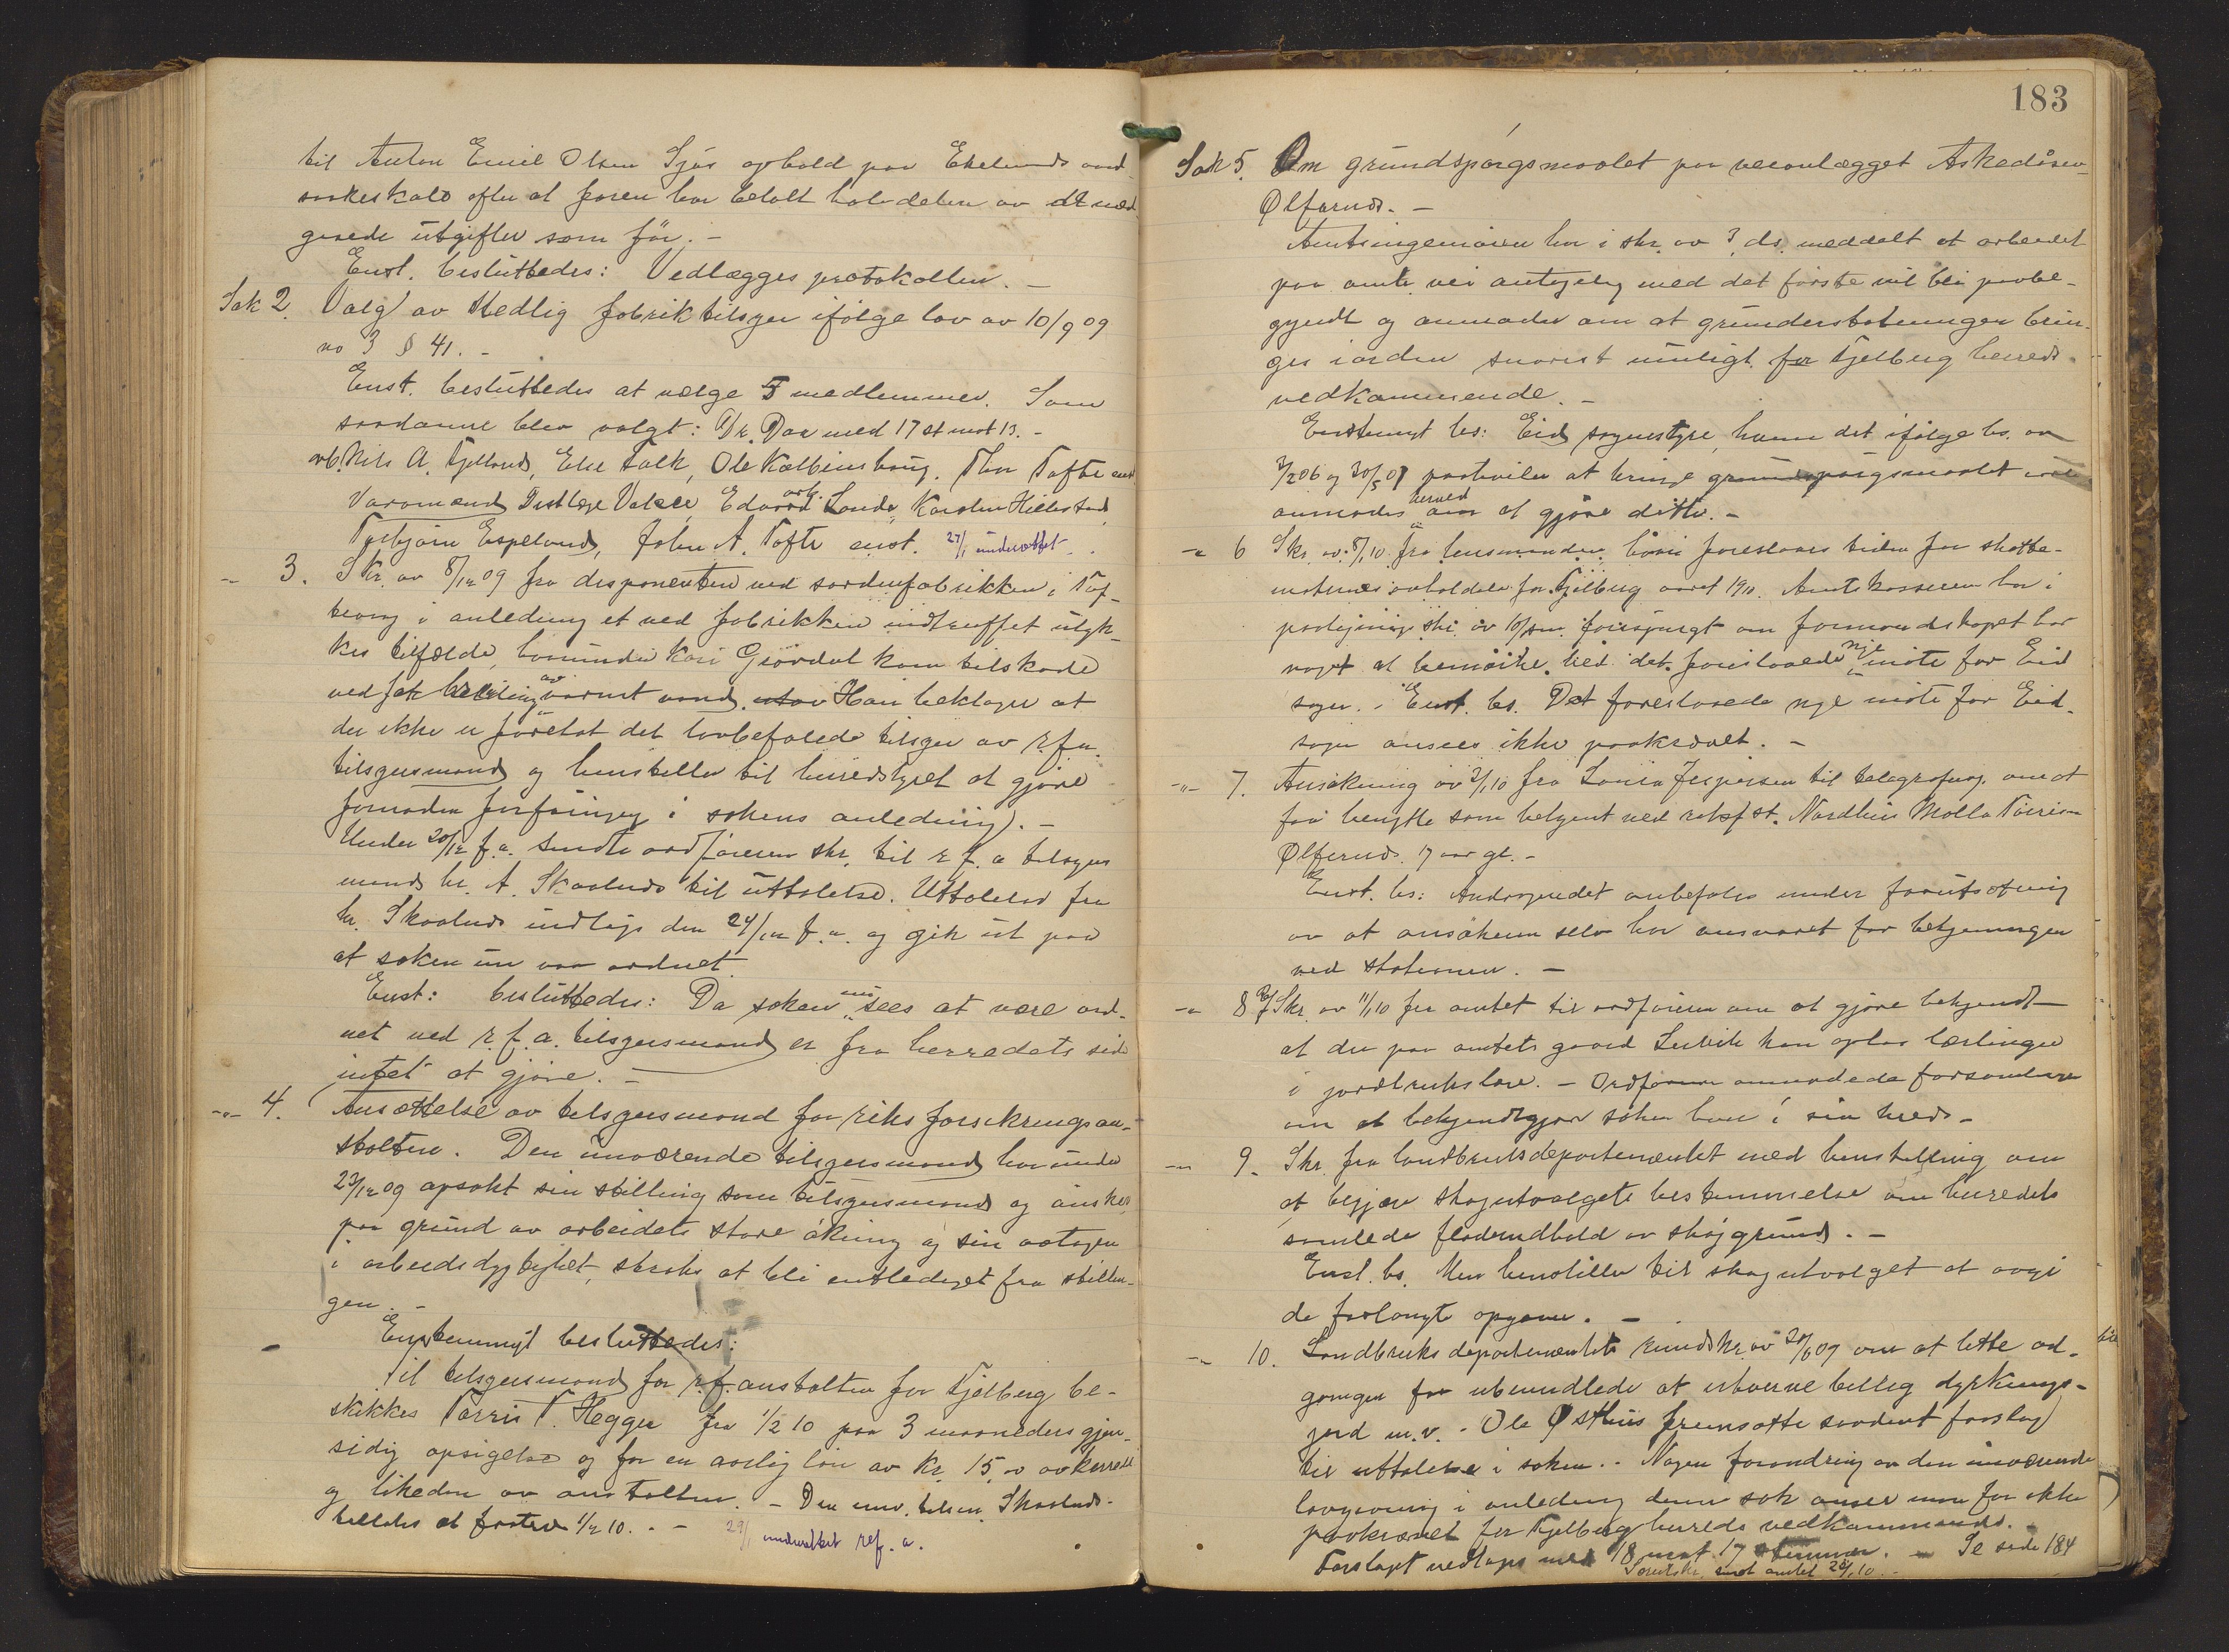 til Anton Emil Olsen Sjøs ophold paa Ekelund
efter at faren har betalt halvdelen av
utgifter som før. –
Enst. besluttedes: Vedlægges protokollen. –
Sak 2. Valg av stedlig fabriktilsyn ifølge lov av 10/9 09
no 3 § 41. –
Enst. besluttedes at vælge 5 medlemmer. Som
saadanne blev valgt: Dr. Daa med 17 st mot 13. –
arb. Nils A. Fjelland, Else Falk, Ole Thor Tofte enst.
Varamænd Distlæge Edvard arb. Lande, Karsten Hillestad
Torbjørn Espeland, John A. Tofte enst. 27/1 underrettet.
–"– 3. Skr. av 8/12 09 fra disponenten ved i
i anledning et ved fabrikken indtruffet ulyk-
kes tilfælde, hvorunder Kari kom tilskade
ved av varmt vand. Han beklager at
der ikke er foretat det lovbefalede tilsyn av r.f.a.
tilsynsmand og henstiller til herredstyret at gjøre
fornøden forføining i sakens anledning. –
Under 20/12 f.a. sendte ordføreren skr. til r.f.a tilsyns
mand hr. A. Skaalnes til uttalelse. Uttalelse fra
hr. Skaalnes indløp den 24/12 f.a. og gik ut paa
at saken nu var ordnet.
Enst: besluttedes: Da saken nu sees at være ord-
net ved r.f.a. tilsynsmand er fra herredets side
intet at gjøre. –
–"– 4. Ansættelse av tilsynsmand for riksforsikringsan-
stalten. Den nuværende tilsynsmand har under
23/12 09 opsakt sin stilling som tilsynsmand og ønsker
paa grund av arbeidets store økning og sin avtagen
i arbeidsdygtighet, straks at bli entlediget fra stillin-
gen. –
Enstemmigt besluttedes:
Til tilsynsmand for r.f.anstalten for Fjelberg be-
skikkes Torris T. Heggen fra 1/2 10 paa 3 maaneders gjen-
sidig opsigelse og for en aarlig løn av kr. 15,00 av herredet
og likedan av anstalten. – Den nuv. tilsm. Skaalnes
tillates at fratræ 1/2 10. – 29/1 underrettet rf. a.
183
Sak 5. Om grundspørgsmaalet paa veianlægget
Ølfarnes. –
Amtsingeniøren har i skr. av 3 ds. meddelt at arbeidet
paa amts vei antagelig med det første vil bli paabe-
gyndt og anmoder om at grunderstatningen brin-
ges iorden snarest muligt for Fjelberg herreds
vedkommende. –
Enstemigt bs: Eid sognestyre, hvem det ifølge bs. av
2/2 06 og 30/5 07 paahviler at bringe grundspørgsmaalet
anmodes herved om at gjøre dette. –
–"– 6 Skr. av 8/1 10 fra lensmanden, hvori foreslaaes tiden for skatte-
møternes avholdelse for Fjelberg aaret 1910. Amtskassereren har i
paategning skr. av 10/1 forespurgt om formandskapet har
noget at bemærke ved det foreslaaede nye møte for Eid
sogn. – Enst. bs. Det foreslaaede nye møte for Eid-
sogn ansees ikke paakrævet. –
–"– 7. Ansøkning av 3/1 10 fra Jespersen til telegrafinsp. om at
faa benytte som betjent ved rikstf st. Nordhus Molla
Ølfernes. 17 aar gl. –
Enst. bs: Andragendet anbefales under forutsætning
av at ansøkeren selv har ansvaret for betjeningen
ved stationen. –
–"– 8 Skr. av 11/1 10 fra amtet til ordføreren om at gjøre bekjendt
at der paa amtets gaard kan optas lærlinger
i jordbrukslære. – Ordføreren anmodede forsamlingen
om at bekjendtgjøre saken hver i sin kreds –
–"– 9. Skr. fra landbruksdepartementet med henstilling om
at begjære skogutvalgets bestemmelse om herredets
samlede fladeindhold av skoggrund. –
Enst. bs. Man henstiller til skogutvalget at avgi
de forlangte opgaver. –
–"– 10. Landbruksdepartementets rundskr. av 20/6 09 om at lette ad-
gangen for ubemidlede at erhverve billig dyrknings-
jord m.v. – Ole Østhus fremsatte saadant forslag
til uttalelse i saken. – Nogen forandring av den nuværende
lovgivning i anledning denne sak anser man for ikke
paakrævet for Fjelberg herreds vedkommende. –
Forslaget vedtages med 18 mot 17 stemmer. – Se side 184
sendt amtet 29/1 10. –